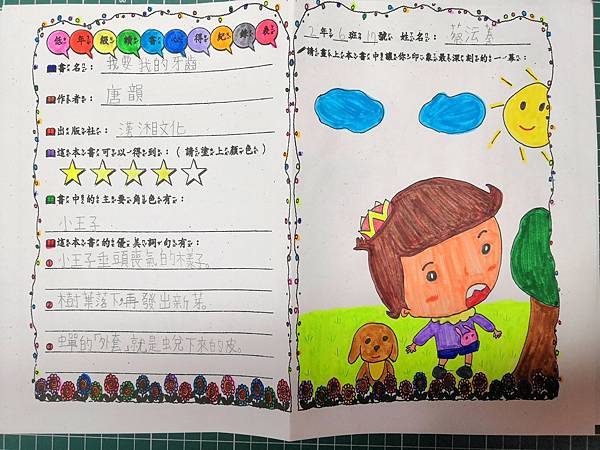 低年級讀書心得紀錄表
書名：我要我的牙齒
作者：唐韻
出版社：瀟湘文化
這本書可以得到：（請塗上顏色）
書中的主要角色有：
小王子
這本書的優美詞句有：
① 小王子垂頭喪氣的樣子。
② 樹葉落下，再發出新芽。
③ 蟬的「外套」就是蛻下來的皮。
2年6班17號 姓名：蔡
請畫上本書中讓你印象最深刻的一幕：